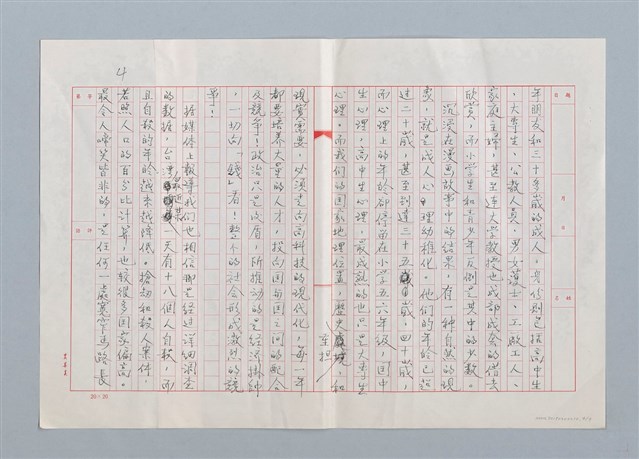 年朋友和三十多歲的成人，身份則包括高中生
、大專生、公教人員，男女護士、工廠工人、
家庭主婦，甚至連大學教授也成部成套的借去
欣賞，而小學生和青少年反倒是其中的少數。
沉浸在漫畫故事中的結果，有一種自然的現
象，就是成人心理幼稚化。他們的年齡已超
過二十歲，甚至到達三十五歲，四十歲，
而心理上的年齡却停留在小學五六年級，國中
生心理，高中生心理，最成熟的也只是大專生
心理。而我們的國家地理位置，歷史 和
重担
現實需要，必須走向高科技的現代化，每一年
都要培養大量的人才，投向國與國之間的配合
及競爭！政治只是皮盾，所推動的是經濟掛帥
，一切向「錢」看！整個的社會形成激烈的競
爭！
據媒体上報導我們也相信那是經過詳細調查
的數據，台灣 最近某一天有十八個人自殺，而
且自殺的年齡越來越降低。搶劫和殺人案件，
若照人口的百分比計算，也較很多國家偏高。
最令人啼笑皆非的，是任何一處窄窄馬路長
4
20×20